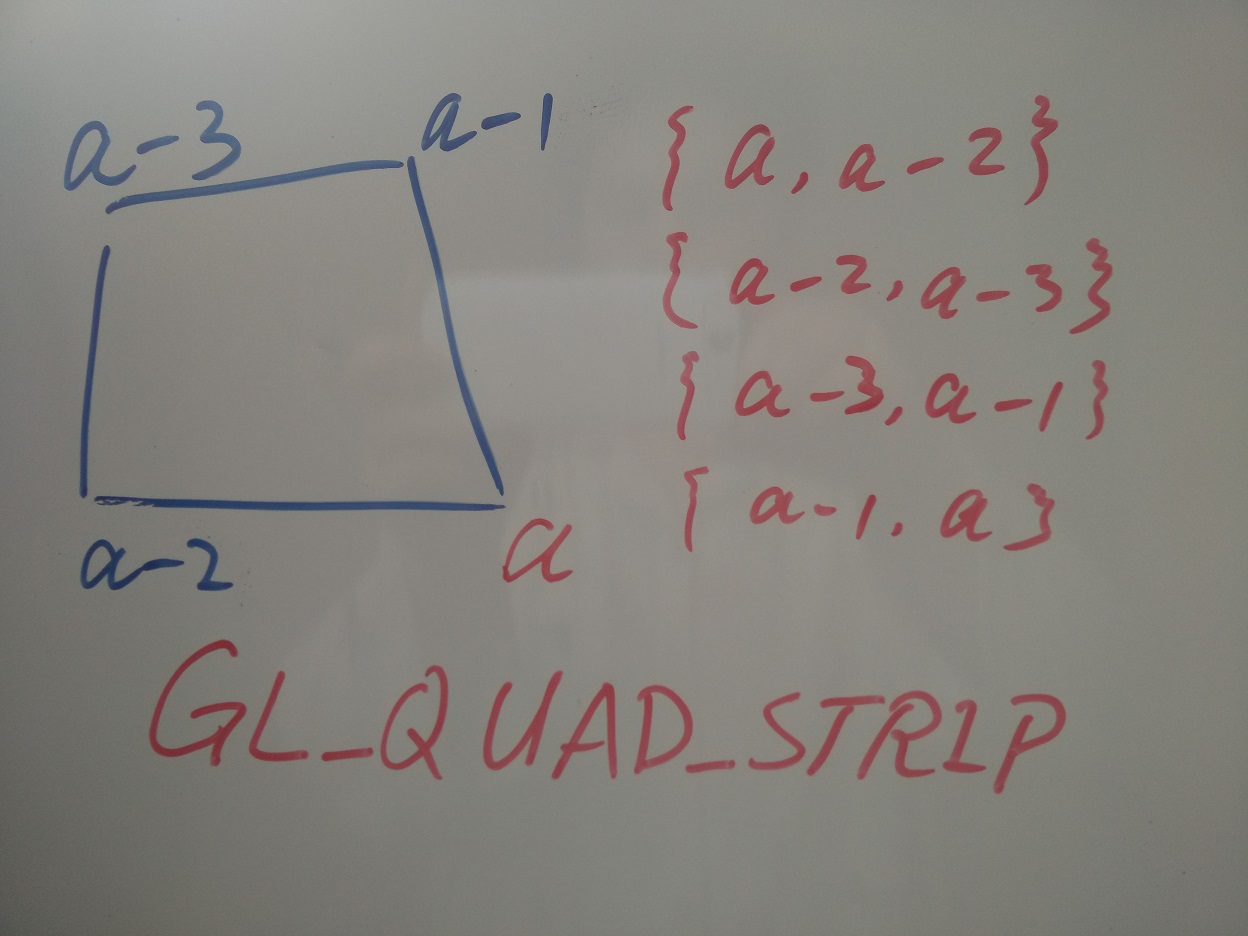 a-3
a-1
a-2
a
{ a, a-2}
{ a-2, a-3}
{ a-3, a-1}
{ a-1, a}
GL_QUAD_STRIP